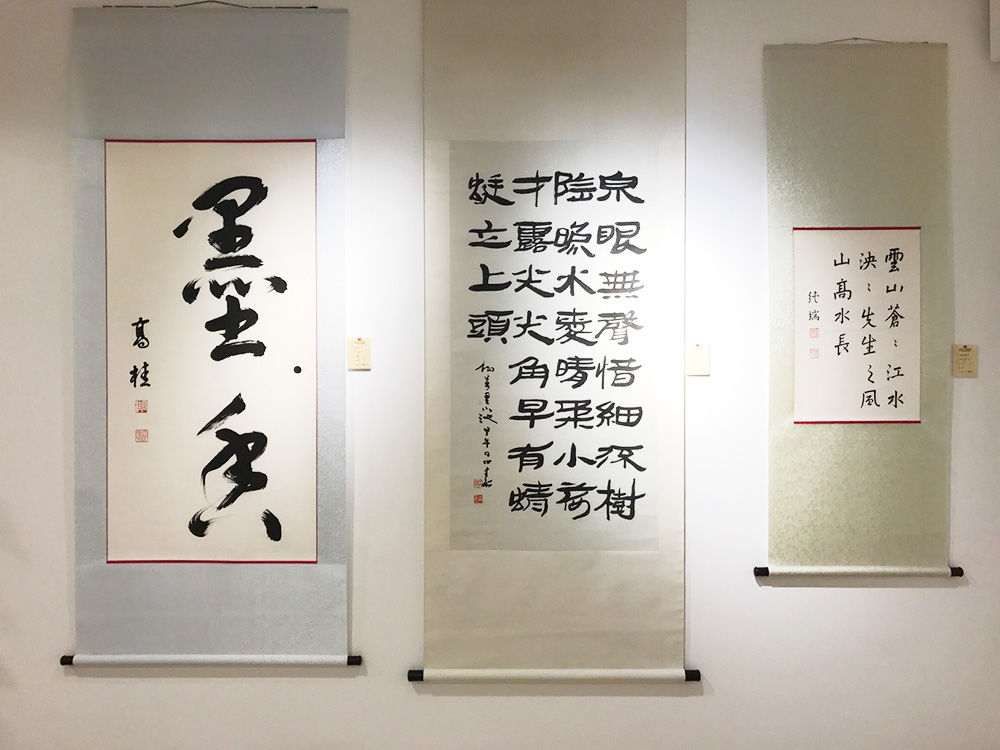 墨香
高桂
泉眼無聲惜細流樹
陰照水愛晴柔小荷
才露尖尖角早有蜻
蜓立上頭
楊萬里小池 甲午
雲山蒼〻江水
泱〻先生之風
山髙水長
純瑞